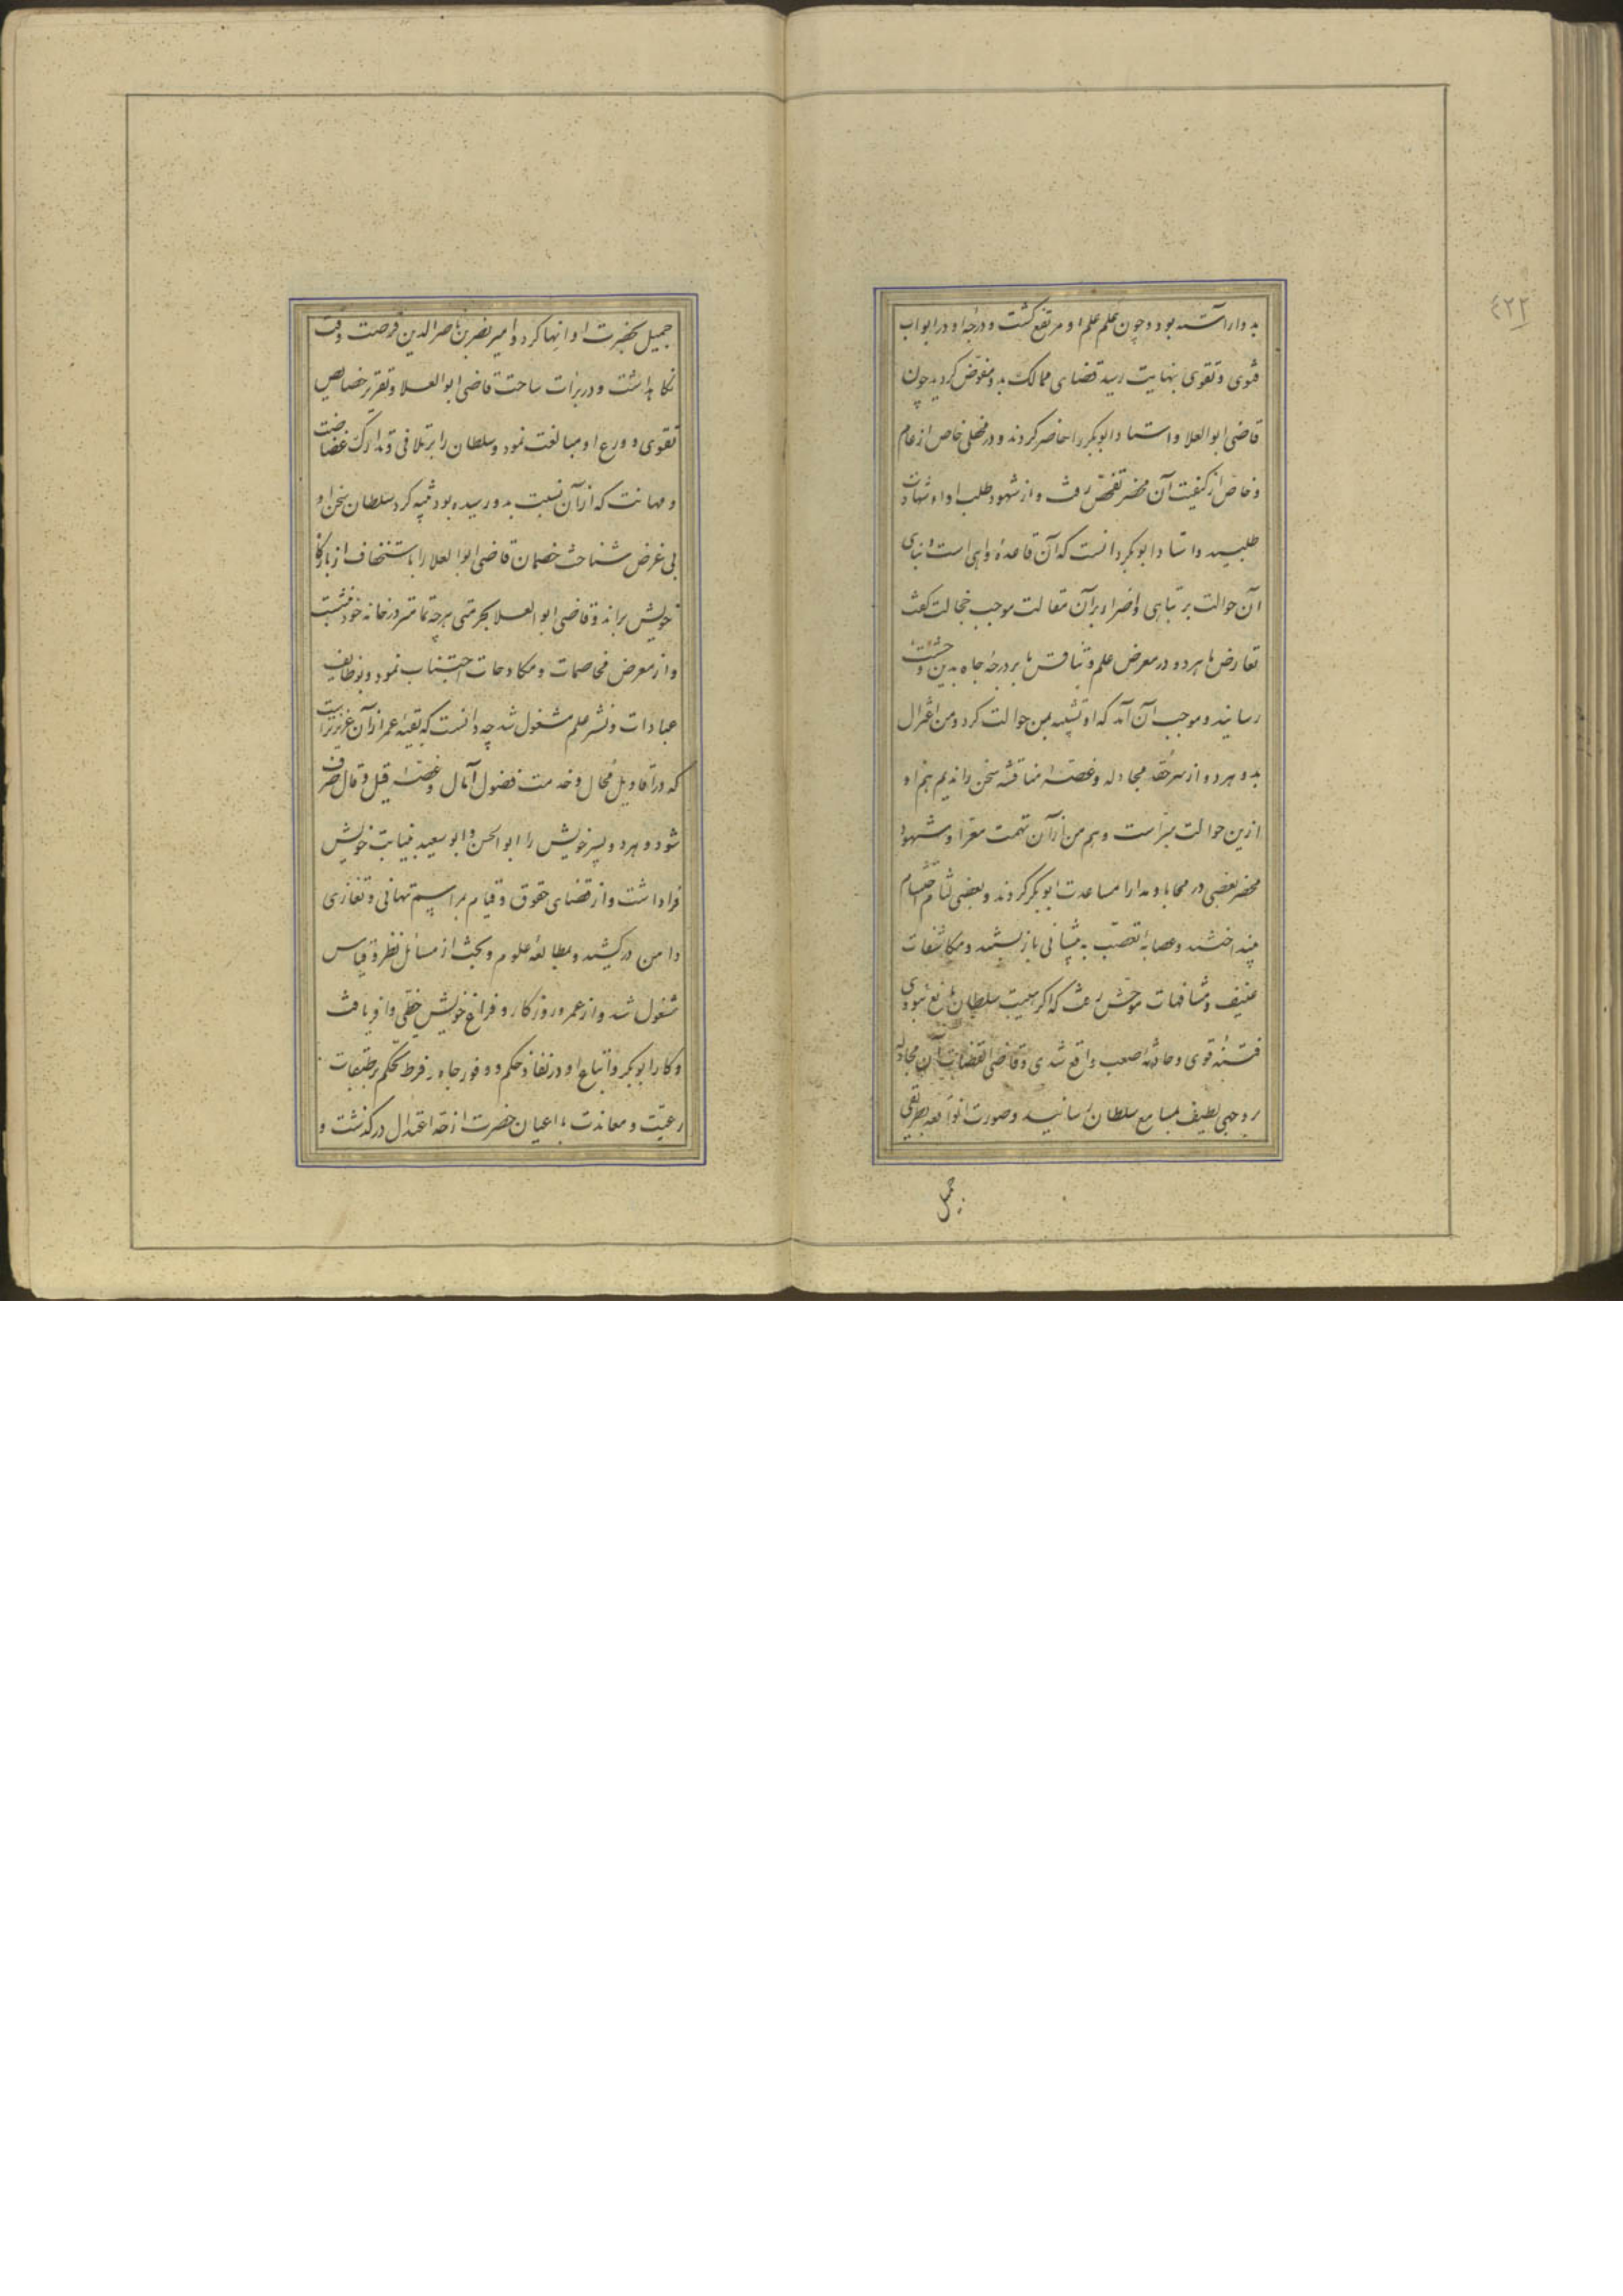 بدو آراسته بود و چون علم علم او مرتفع گشت و درجه او در ابواب
فتوی و تقوی بنهایت رسید قضای ممالک بدو مفوض کردید چون
قاضی ابو العلا و استاد ابوبکر را حاضر کردند و در محفلی خاص از عام
و خاص از کیفیت آن محضر تفحص رفت و از شهود طلب اداء شهادت
طلبیدند استاد ابوبکر دانست که آن قاعده واهی است و بنای
آن حوالت بر تباهی و اصرار بر آن مقالت موجب خجالت گفت
تعارض ما هر دو در معرض علم و تنافس ما بر درجه جاه بدین وحشت
رسانید و موجب آن آمد که او تشبیه بمن حوالت کرد و من اعتزال
بدو هر دو از سر حقد مجادله و غصه مناقشه سخن راندیم هم او
ازین حوالت مبراست و هم من از آن تهمت معرا و شهود
محضر بعضی در محابا و مدارا مساعدت ابوبکر کردند و بعضی لثام احتشام
بینداختند و عصابه تعصب به پیشانی باز بستند و مکاشفات
عنیف و مشافهات موحش رفت که اکر هیبت سلطان مانع نبودی
فتنه قوی و حادثه صعب واقع شدی و قاضی القضات آن مجادله
بوجهی لطیف بمسامع سلطان رسانید و صورت آنواقعه بطریقی
جمیل
جمیل بحضرت او انها کرد و امیر نصر بن ناصر الدین فرصت وقت
نکاه داشت و در براءت ساحت قاضی ابو العلا و تقریر خصایص
تقوی و ورع او مبالغت نمود و سلطان را بر تلافی و تدارک غضاضت
و مهانت که از آن نسبت بدو رسیده بود تنبیه کرد سلطان سخن او
بی غرض شناخت خصمان قاضی ابو العلا را باستخفاف از بارکاه
خویش براند و قاضی ابو العلا بحرمتی هر چه تمامتر در خانه خود نشست
و از معرض مخاصمات و مکاوحات اجتناب نمود و بوظایف
عبادات و نشر علم مشغول شد چه دانست که بقیه عمر از آن عزیزتر است
که در اقاویل محال و خدمت فضول آمال و غصه قیل و قال صرف
شود و هر دو پسر خویش را ابو الحسن و ابو سعید بنیابت خویش
فرا داشت و از قضای حقوق و قیام بمراسم تهانی و تعازی
دامن در کشید و بمطالعه علوم و بحث از مسائل نظر و قیاس
مشغول شد و از عمر و روزکار و فراغ خویش حظی وافر یافت
و کار ابوبکر و اتباع او در نفاذ حکم و وفور جاه و فرط تحکم بر طبقات
رعیت و معاندت با اعیان حضرت از حد اعتدال درکذشت و
٤٢٢